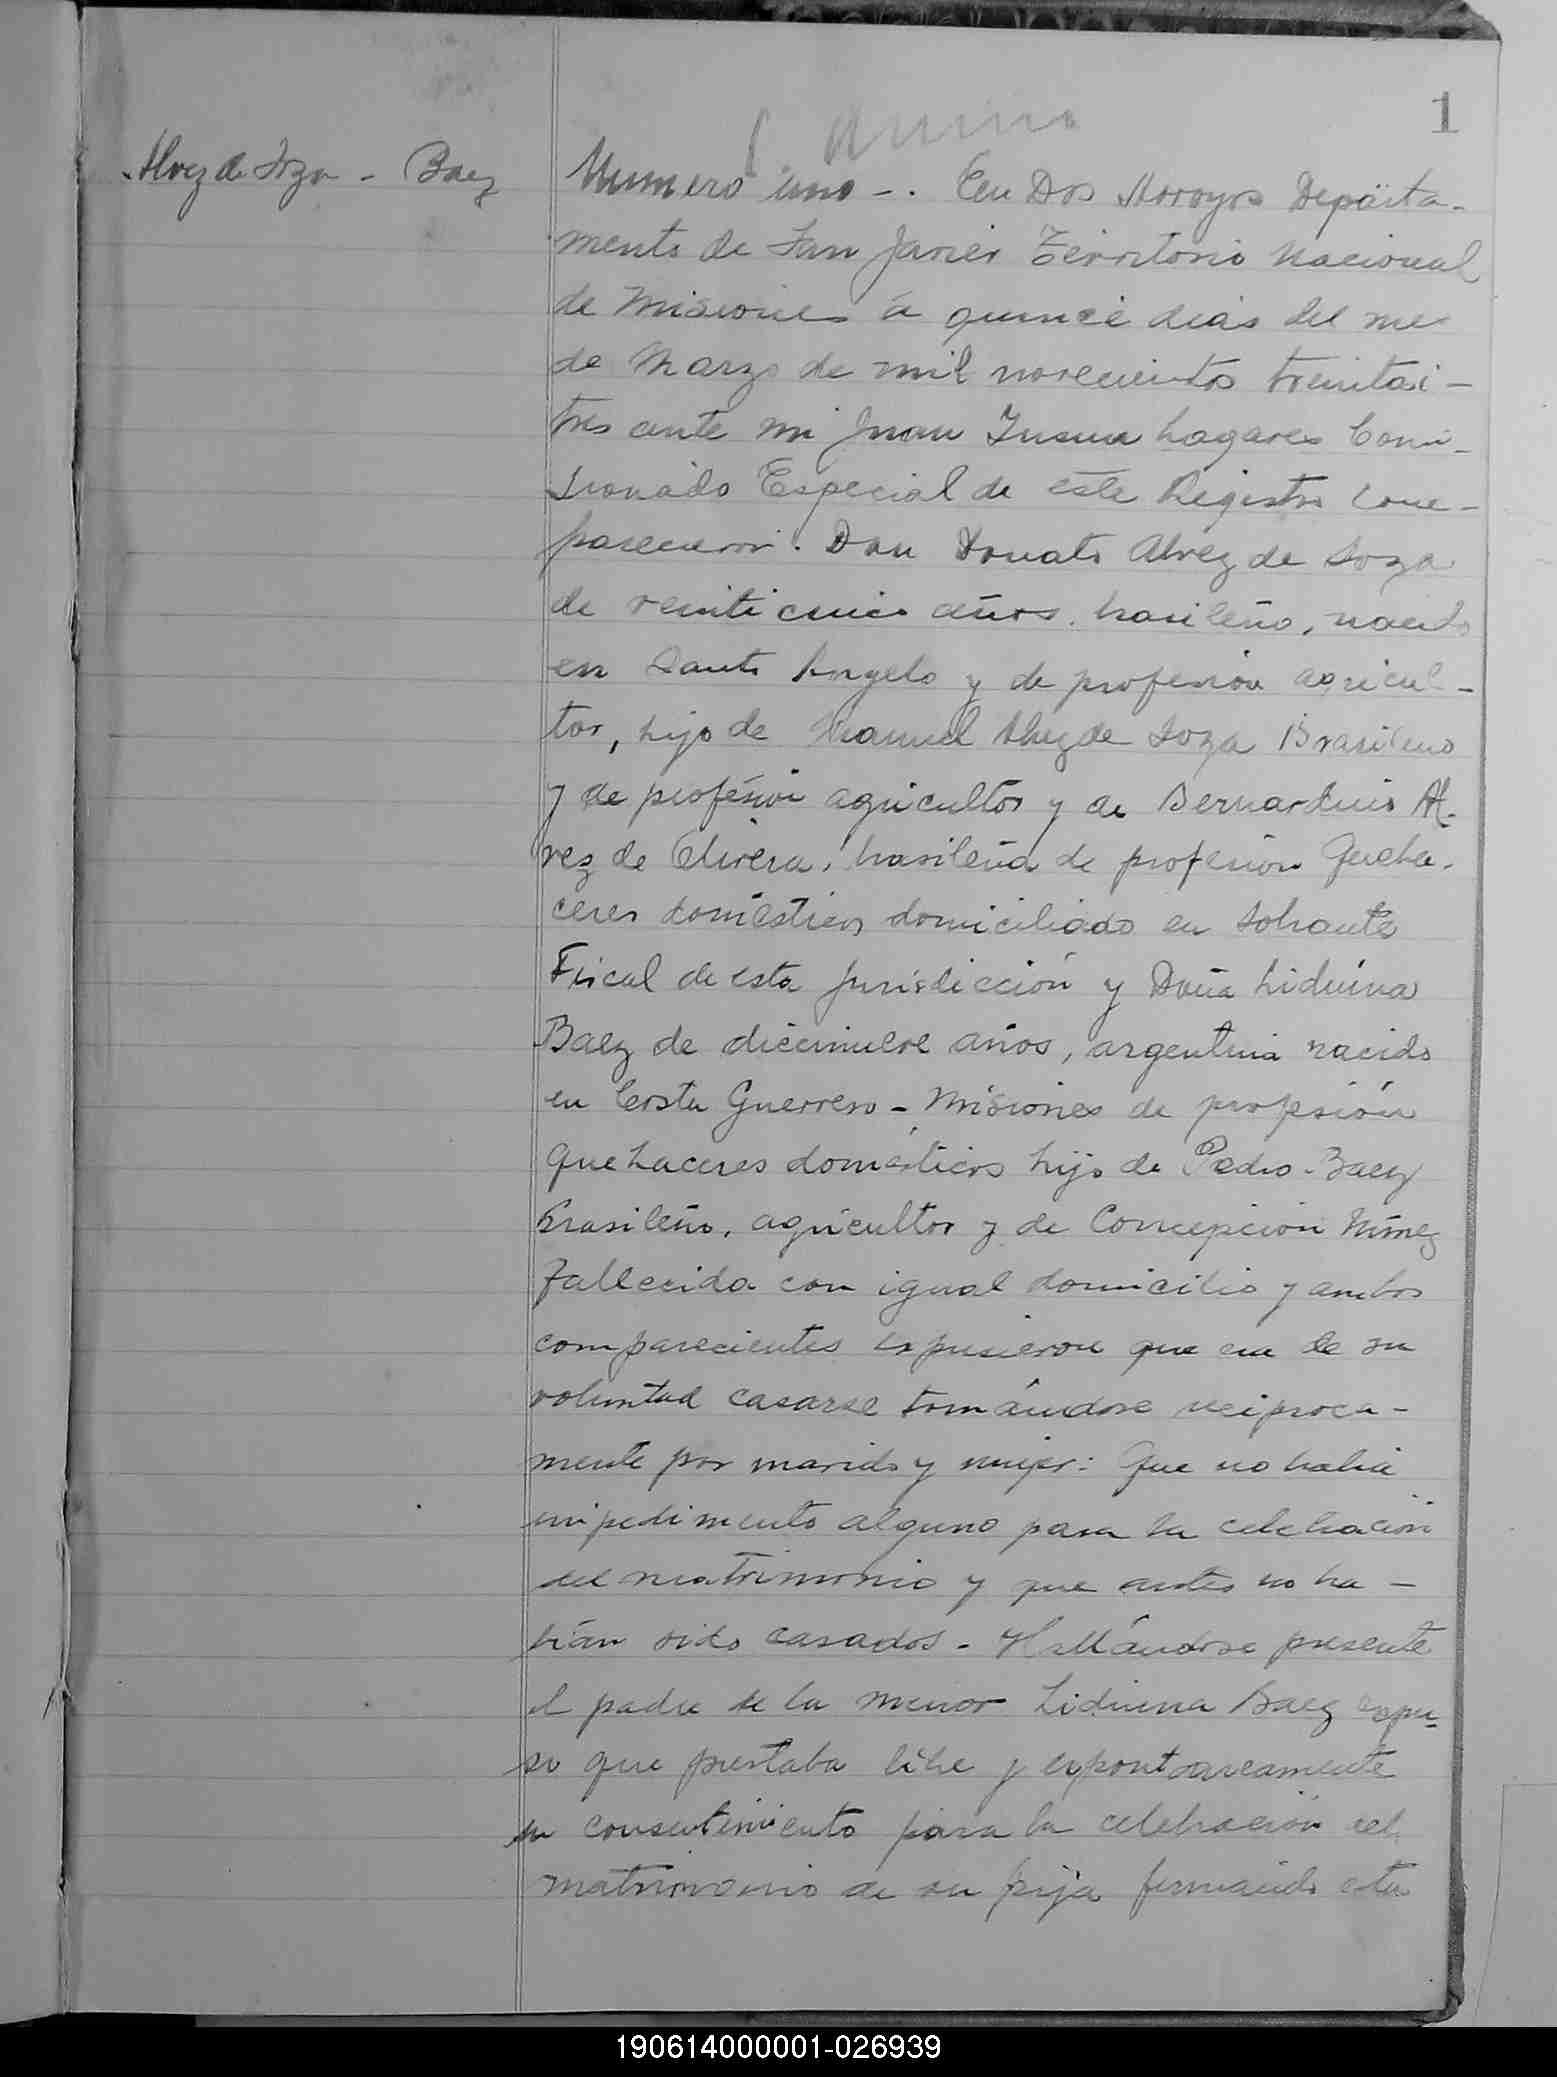 1
Alvez de Soza - Baez
Numero uno -. En Dos Arroyos Departa-
mento de San Javier Territorio Nacional
de Misiones á quince dias del mes
de Marzo de mil novecientos treintai-
tres ante mi Juan Lagares Comi-
sionado Especial de este Registro com-
parecieron. Don Donato Alvez de Soza
de veinticinco años, brasileño, nacido
en Santo Angelo y de profesion agricul-
tor, hijo de Manuel Alvez de Soza Brasileno
y de profesión agricultor y de Bernardina Al-
vez de Olivera, brasileña de profesion Queha-
ceres domésticos domiciliado en Sobrante
Fiscal de esta jurisdicción y Doña Liduina
Baez de diecinueve años, argentina nacida
en Costa Guerrero - Misiones de profesión
Quehaceres domésticos hija de Pedro Baez
brasileño, agricultor y de Concepción Núnez
fallecida con igual domicilio y ambos
comparecientes expusieron que era de su
voluntad casarse tomándose reciproca-
mente por marido y mujer: Que no habia
impedimento alguno para la celebracion
del matrimonio y que antes no ha-
bían sido casados - Hallándose presente
el padre de la menor Liduina Baez expu-
so que prestaba libre y espontaneamente
su consentimiento para la celebracion del
matrimonio de su hija firmando esta
190614000001-026939